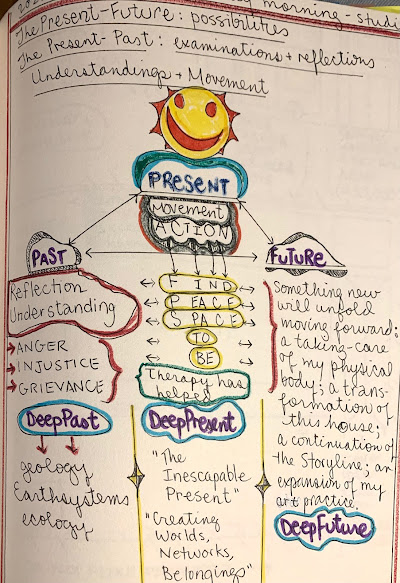 morning - studi
The Present-Future: possibilities
The Present-Past: examinations + reflections
Understandings + Movement
PRESENT
Movement
ACTION
PAST
Reflection
Understanding
ANGER
INJUSTICE
GRIEVANCE
DeepPast
geology
Earthsystems
ecology
FIND
PEACE
SPACE
TO
BE
Therapy has
helped
DeepPresent
"The
Inescapable
Present"
"Creating
Worlds,
Networks,
Belongings"
FUTURE
Something new
will unfold
moving forward:
a taking-care
of my physical
body; a trans-
formation of
this house;
a continuation of
the Storyline; an
expansion of my
art practice.
DeepFuture